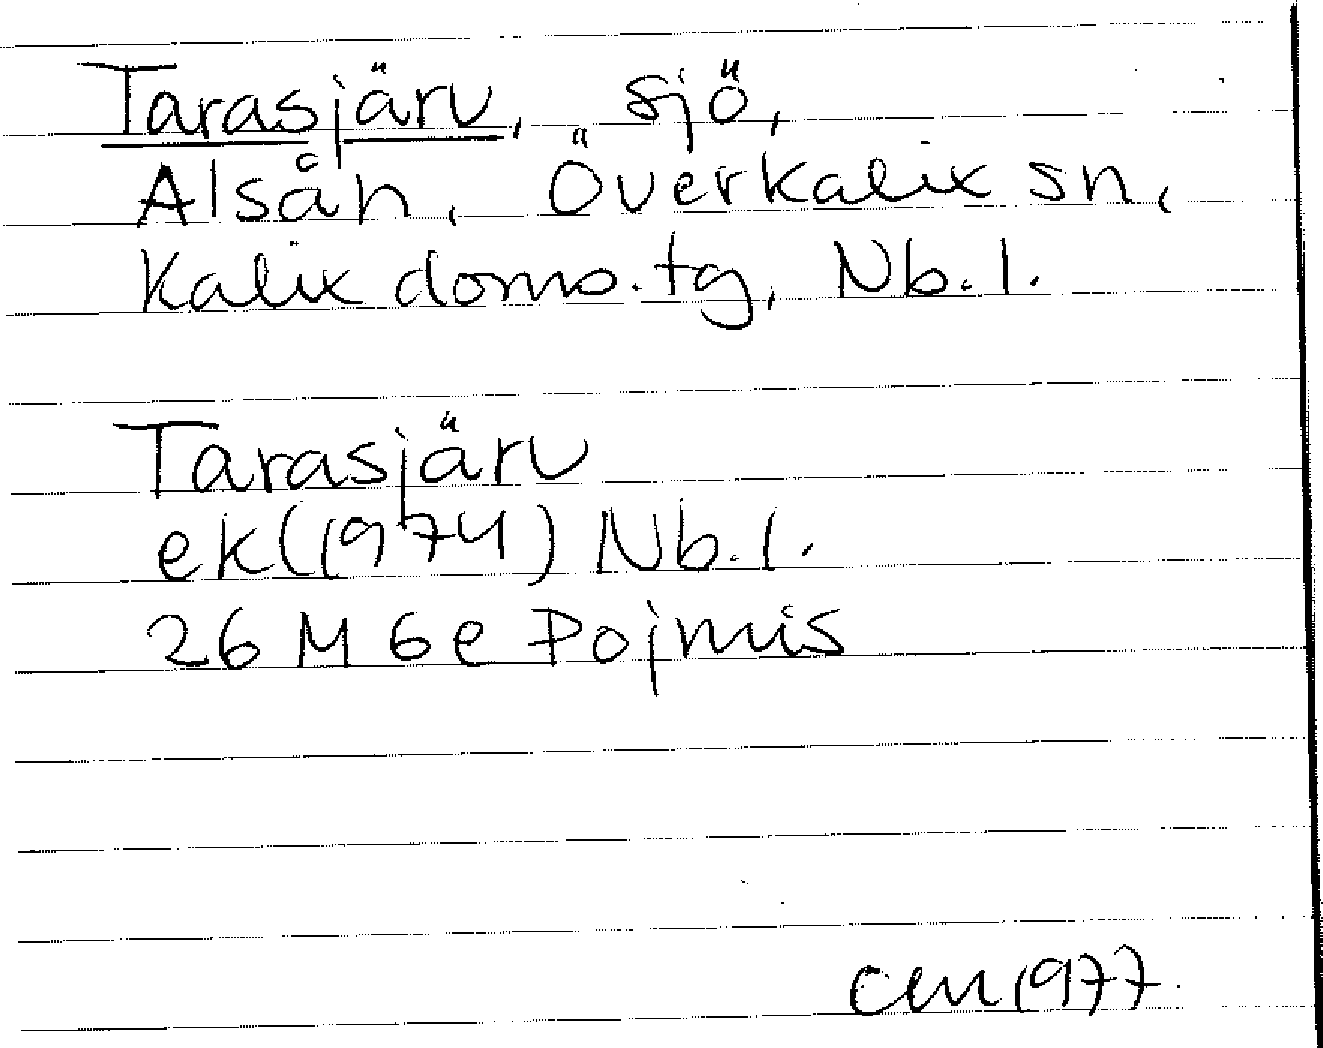 Tarasjärv, sjö,
Alsån, Överkalix sn,
Kalix doms.tg, Nb.l.
Tarasjärv
ek(1974) Nb.l.
26 M 6e Pojmis
CEM 1977